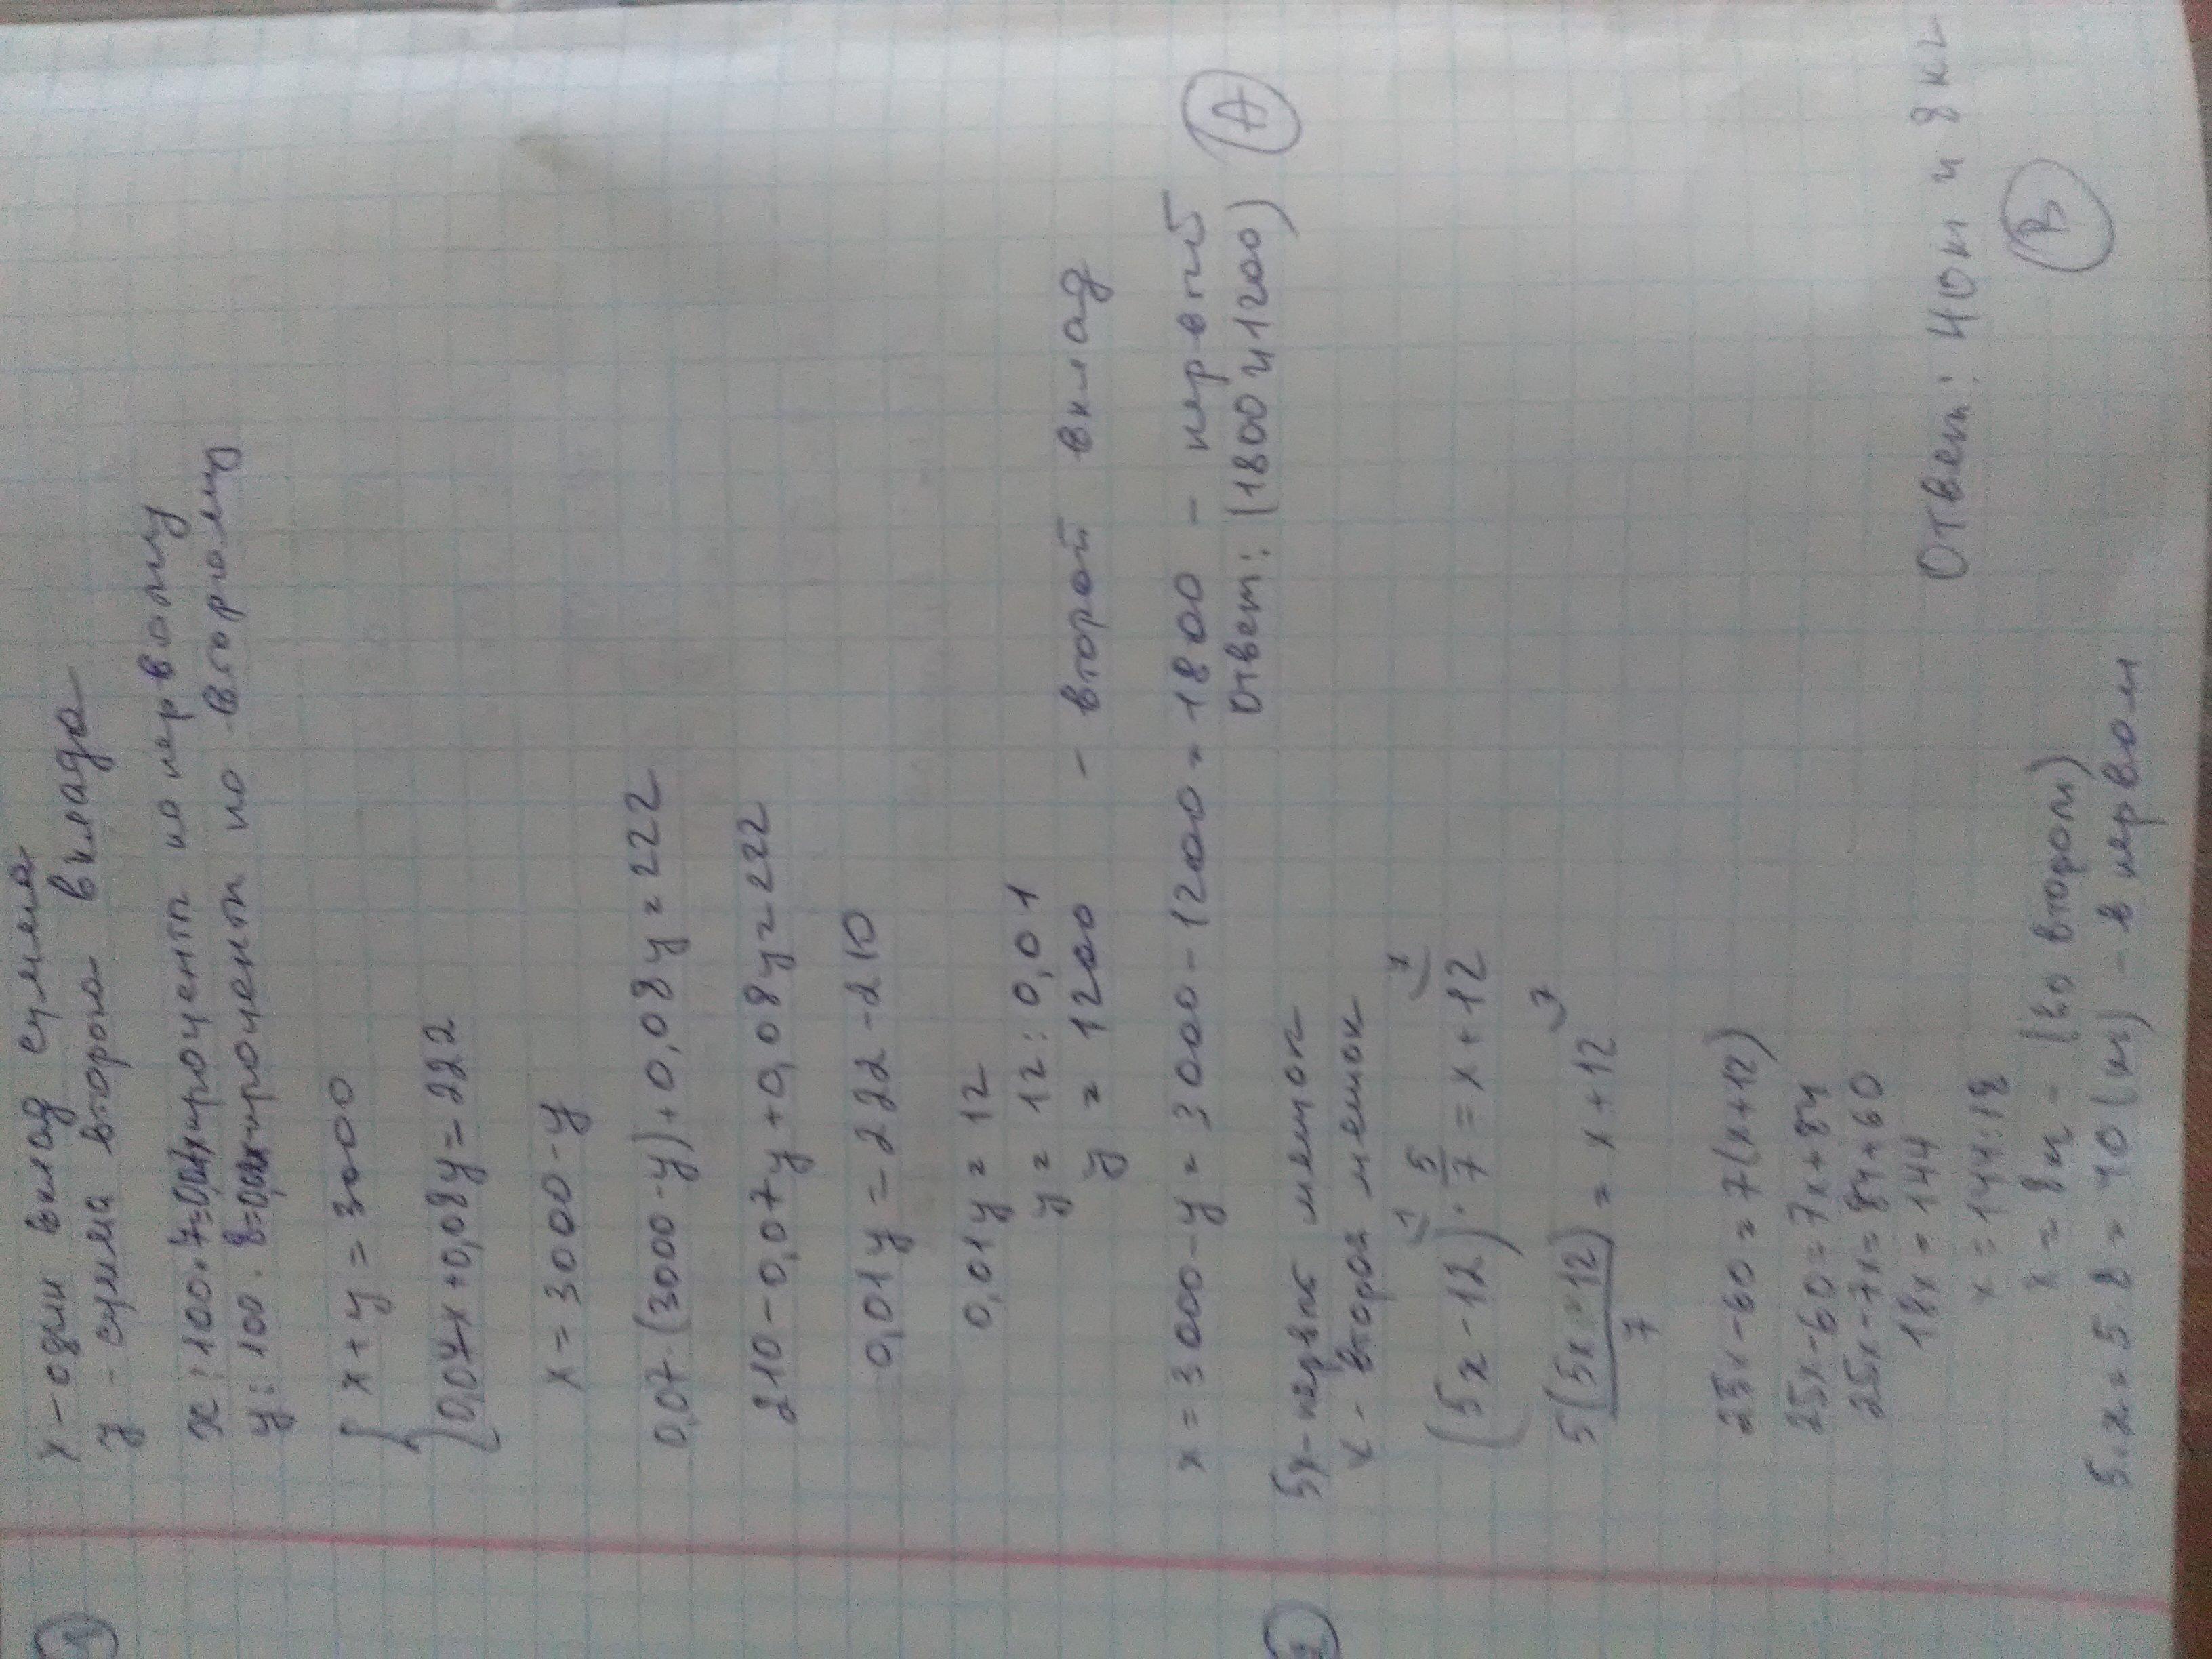 1
x - один вклад сумма
y - сумма второго вклада
x : 100 · 7 = 0,07x проценты по первому
y : 100 · 8 = проценты по второму
{ x + y = 3000
0,07x + 0,08y = 222
x = 3000 - y
0,07 · (3000 - y) + 0,08y = 222
210 - 0,07y + 0,08y = 222
0,01y = 222 - 210
0,01y = 12
y = 12 : 0,01
y = 1200 - второй вклад
x = 3000 - y = 3000 - 1200 = 1800 - первый
Ответ: (1800 и 1200) A
2
5x - первый мешок
x - второй мешок
(5x - 12) · 5/7 = x + 12
5(5x - 12)/7 = x + 12
25x - 60 = 7(x + 12)
25x - 60 = 7x + 84
25x - 7x = 84 + 60
18x = 144
x = 144 : 18
x = 8 - (во втором)
5 · x = 5 · 8 = 40 (кг) - в первом
Ответ: 40 и 8 кг
B